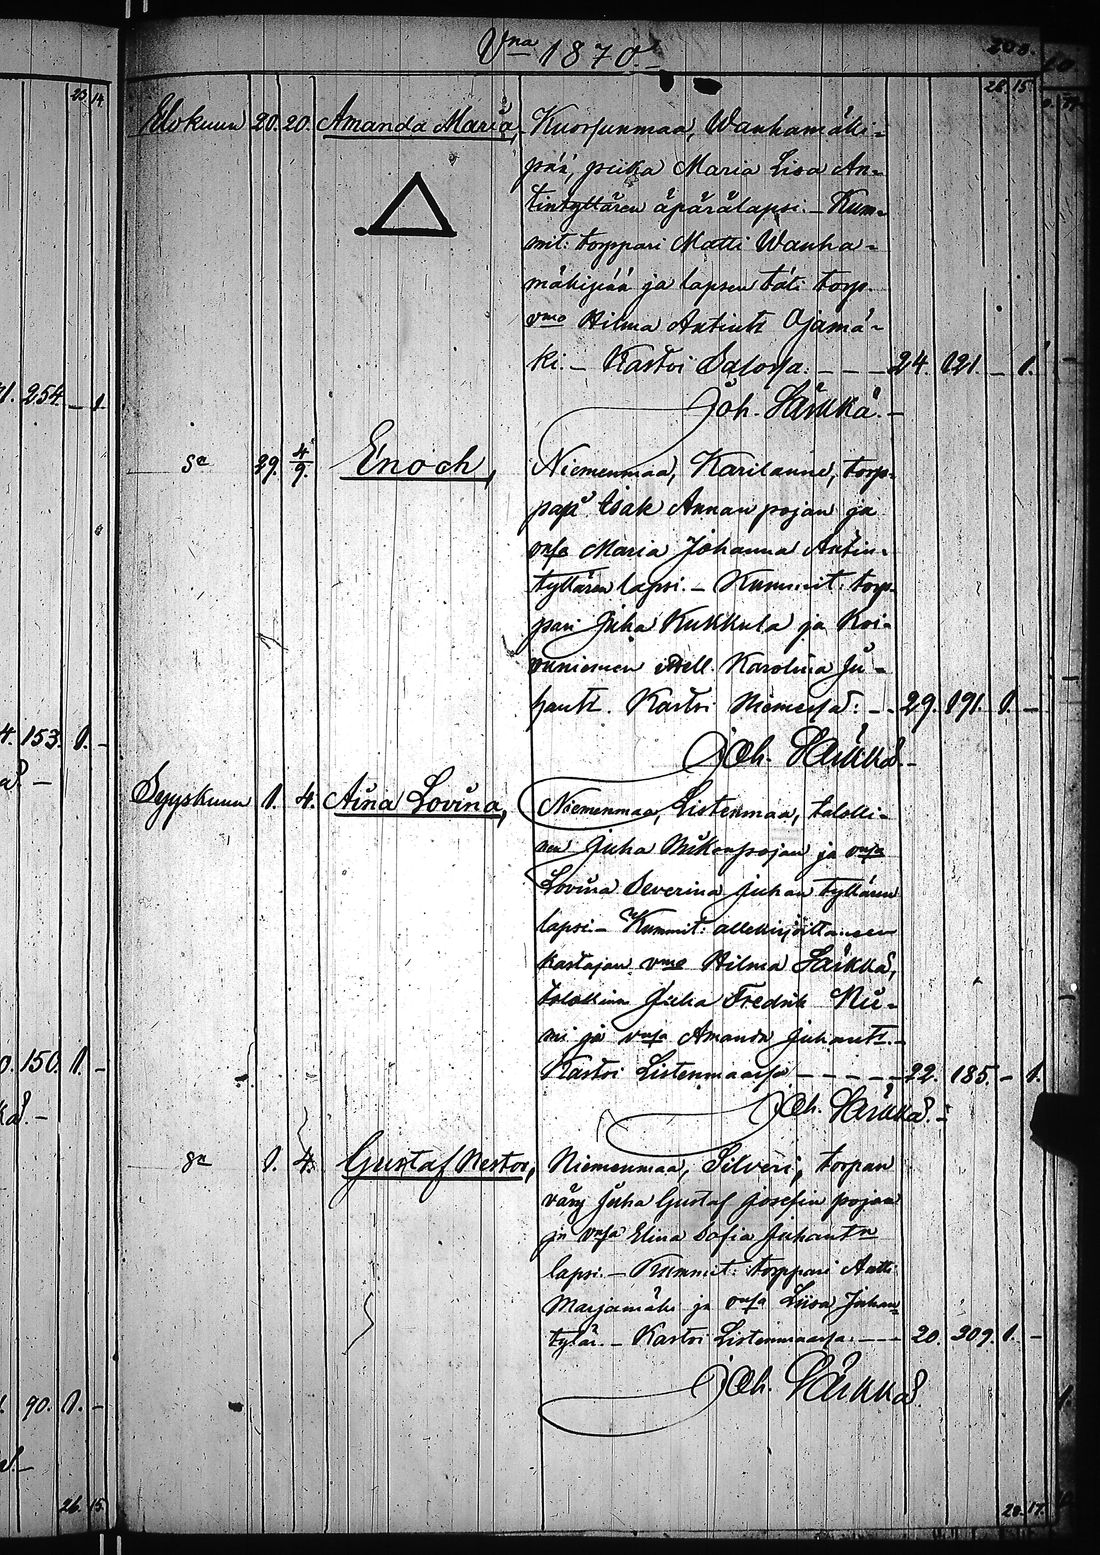 Vna 1870.
208.
28. 15.
Elokuun 20. 20. Amanda Maria, Kuorsunmaa, Wanhamäki-
pää, piika Maria Lisa An-
tintyttären äpärälapsi. – Kum-
mit: torppari Matti Wanha-
mäkipää ja lapsen täti torp.
vmo Hilma Antint. Ojamä-
ki. – Kastoi Salossa. – – – 24. 121. – 1.
Joh. Särkkä. –
Sa 29. 4/9. Enoch, Niemenmaa, Karilanne, torp-
pari Isak Annan pojan ja
vmsa Maria Johanna Antin-
tyttären lapsi. – Kummit: torp-
pari Juha Kukkula ja Koi-
vuniemen Karolina Ju-
hant. Kastoi Niemessä. – – 29. 191. 1. –
Joh. Särkkä. –
Syyskuun 1. 4. Aina Lovina, Niemenmaa, Listenmaa, talolli-
nen Juha Mikonpojan ja vmsa
Lovina Severina Juhan tyttären
lapsi. – Kummit: allekirjoittaneen
kastajan vmo Hilma Särkkä,
talollinen Juha Fredrik Nie-
mi ja vmsa Amanda Juhant. –
Kastoi Listenmaassa – – – – – 22. 185. – 1.
Joh. Särkkä. –
Sa 1. 4. Gustaf Nestor, Niemenmaa, Silveri, torpan
väry Juha Gustaf Josefin pojan
ja vmsa Elina Sofia Juhantn
lapsi. – Kummit: torppari Antti
Marjamäki ja vmsa Liisa Juhan-
tytär. – Kastoi Listenmaassa. – – – 20. 209. 1. –
Joh. Särkkä.
23. 14.
254. – 1.
153. 1. –
150. 1. –
90. 1. –
26. 15.
29. 17.